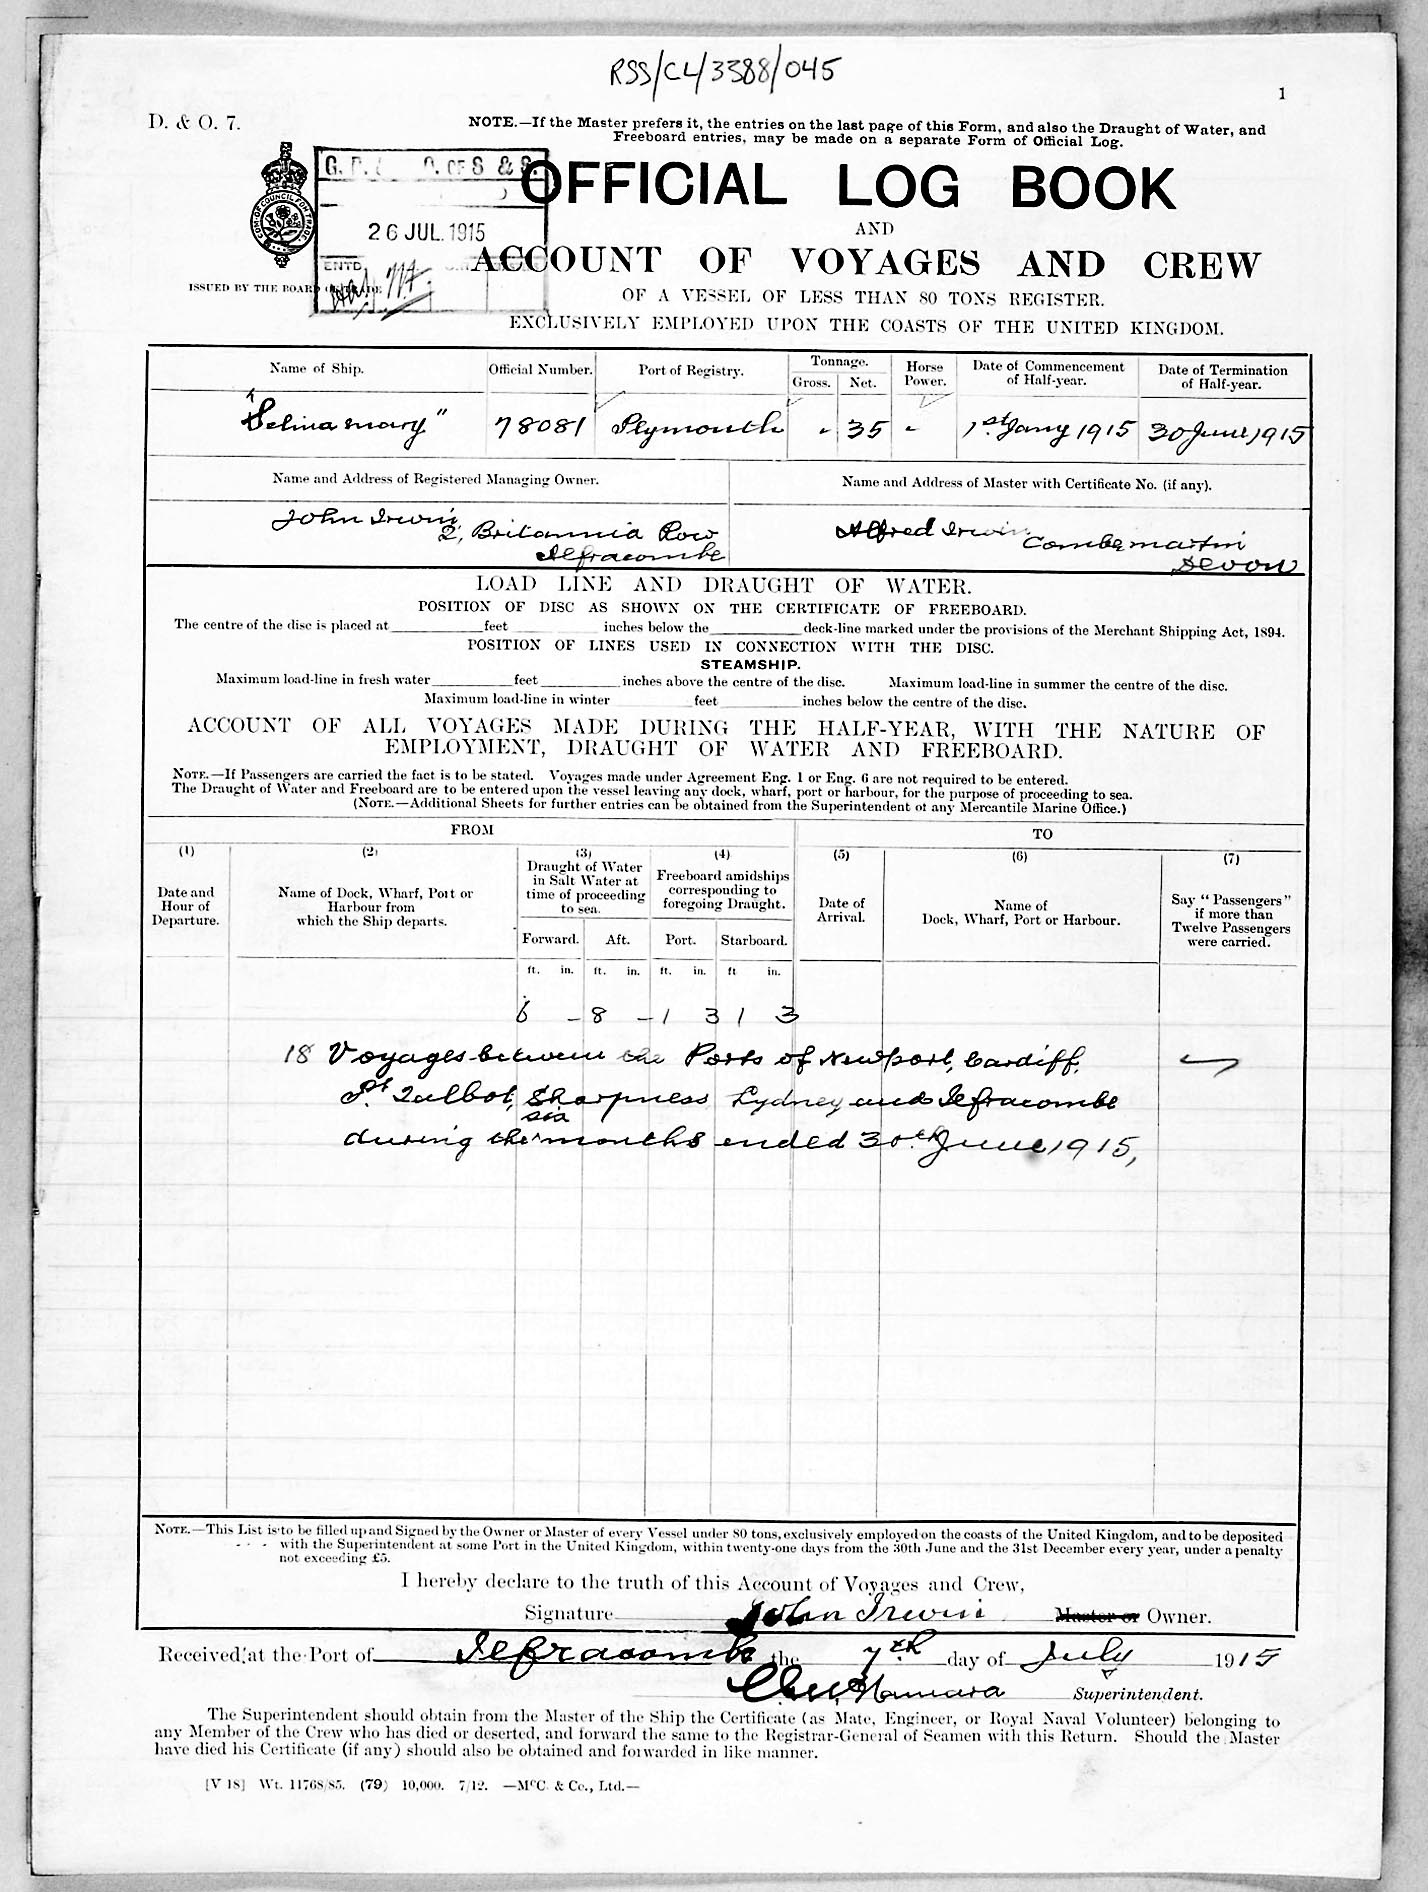 RSS/CL/3388/045
1
D. & O. 7.
NOTE.—If the Master prefers it, the entries on the last page of this Form, and also the Draught of Water, and
Freeboard entries, may be made on a separate Form of Official Log.
OFFICIAL LOG BOOK
AND
ACCOUNT OF VOYAGES AND CREW
OF A VESSEL OF LESS THAN 80 TONS REGISTER.
EXCLUSIVELY EMPLOYED UPON THE COASTS OF THE UNITED KINGDOM.
COM. OF COUNCIL FOR TRADE
OF S & S.
26 JUL. 1915
ENTD
ISSUED BY THE BOARD OF TRADE
Name of Ship. Official Number. Port of Registry. Tonnage. Horse Power. Date of Commencement of Half-year. Date of Termination of Half-year.
Gross. Net.
"Selina Mary" 78081 Plymouth " 35 " 1st Jany 1915 30 June 1915
Name and Address of Registered Managing Owner. Name and Address of Master with Certificate No. (if any).
John Irwin Alfred Irwin
2, Britannia Row Combemartin
Ilfracombe Devon
LOAD LINE AND DRAUGHT OF WATER.
POSITION OF DISC AS SHOWN ON THE CERTIFICATE OF FREEBOARD.
The centre of the disc is placed at feet inches below the deck-line marked under the provisions of the Merchant Shipping Act, 1894.
POSITION OF LINES USED IN CONNECTION WITH THE DISC.
STEAMSHIP.
Maximum load-line in fresh water feet inches above the centre of the disc. Maximum load-line in summer the centre of the disc.
Maximum load-line in winter feet inches below the centre of the disc.
ACCOUNT OF ALL VOYAGES MADE DURING THE HALF-YEAR, WITH THE NATURE OF
EMPLOYMENT, DRAUGHT OF WATER AND FREEBOARD.
NOTE.—If Passengers are carried the fact is to be stated. Voyages made under Agreement Eng. 1 or Eng. 6 are not required to be entered.
The Draught of Water and Freeboard are to be entered upon the vessel leaving any dock, wharf, port or harbour, for the purpose of proceeding to sea.
(NOTE.—Additional Sheets for further entries can be obtained from the Superintendent of any Mercantile Marine Office.)
FROM TO
(1) (2) (3) (4) (5) (6) (7)
Date and Hour of Departure.
Name of Dock, Wharf, Port or Harbour from which the Ship departs.
Draught of Water in Salt Water at time of proceeding to sea.
Freeboard amidships corresponding to foregoing Draught.
Date of Arrival.
Name of Dock, Wharf, Port or Harbour.
Say "Passengers" if more than Twelve Passengers were carried.
Forward. Aft. Port. Starboard.
ft. in. ft. in. ft. in. ft in.
6 - 8 - 1 3 1 3
18 Voyages between the Ports of Newport, Cardiff,
Pt Talbot, Sharpness Lydney and Ilfracombe
six
during the months ended 30th June 1915,
NOTE.—This List is to be filled up and Signed by the Owner or Master of every Vessel under 80 tons, exclusively employed on the coasts of the United Kingdom, and to be deposited
with the Superintendent at some Port in the United Kingdom, within twenty-one days from the 30th June and the 31st December every year, under a penalty
not exceeding £5.
I hereby declare to the truth of this Account of Voyages and Crew,
Signature John Irwin Master or Owner.
Received at the Port of Ilfracombe the 7th day of July 1915
Superintendent.
The Superintendent should obtain from the Master of the Ship the Certificate (as Mate, Engineer, or Royal Naval Volunteer) belonging to
any Member of the Crew who has died or deserted, and forward the same to the Registrar-General of Seamen with this Return. Should the Master
have died his Certificate (if any) should also be obtained and forwarded in like manner.
[V 18] Wt. 11768/85. (79) 10,000. 7/12. —McC. & Co., Ltd.—